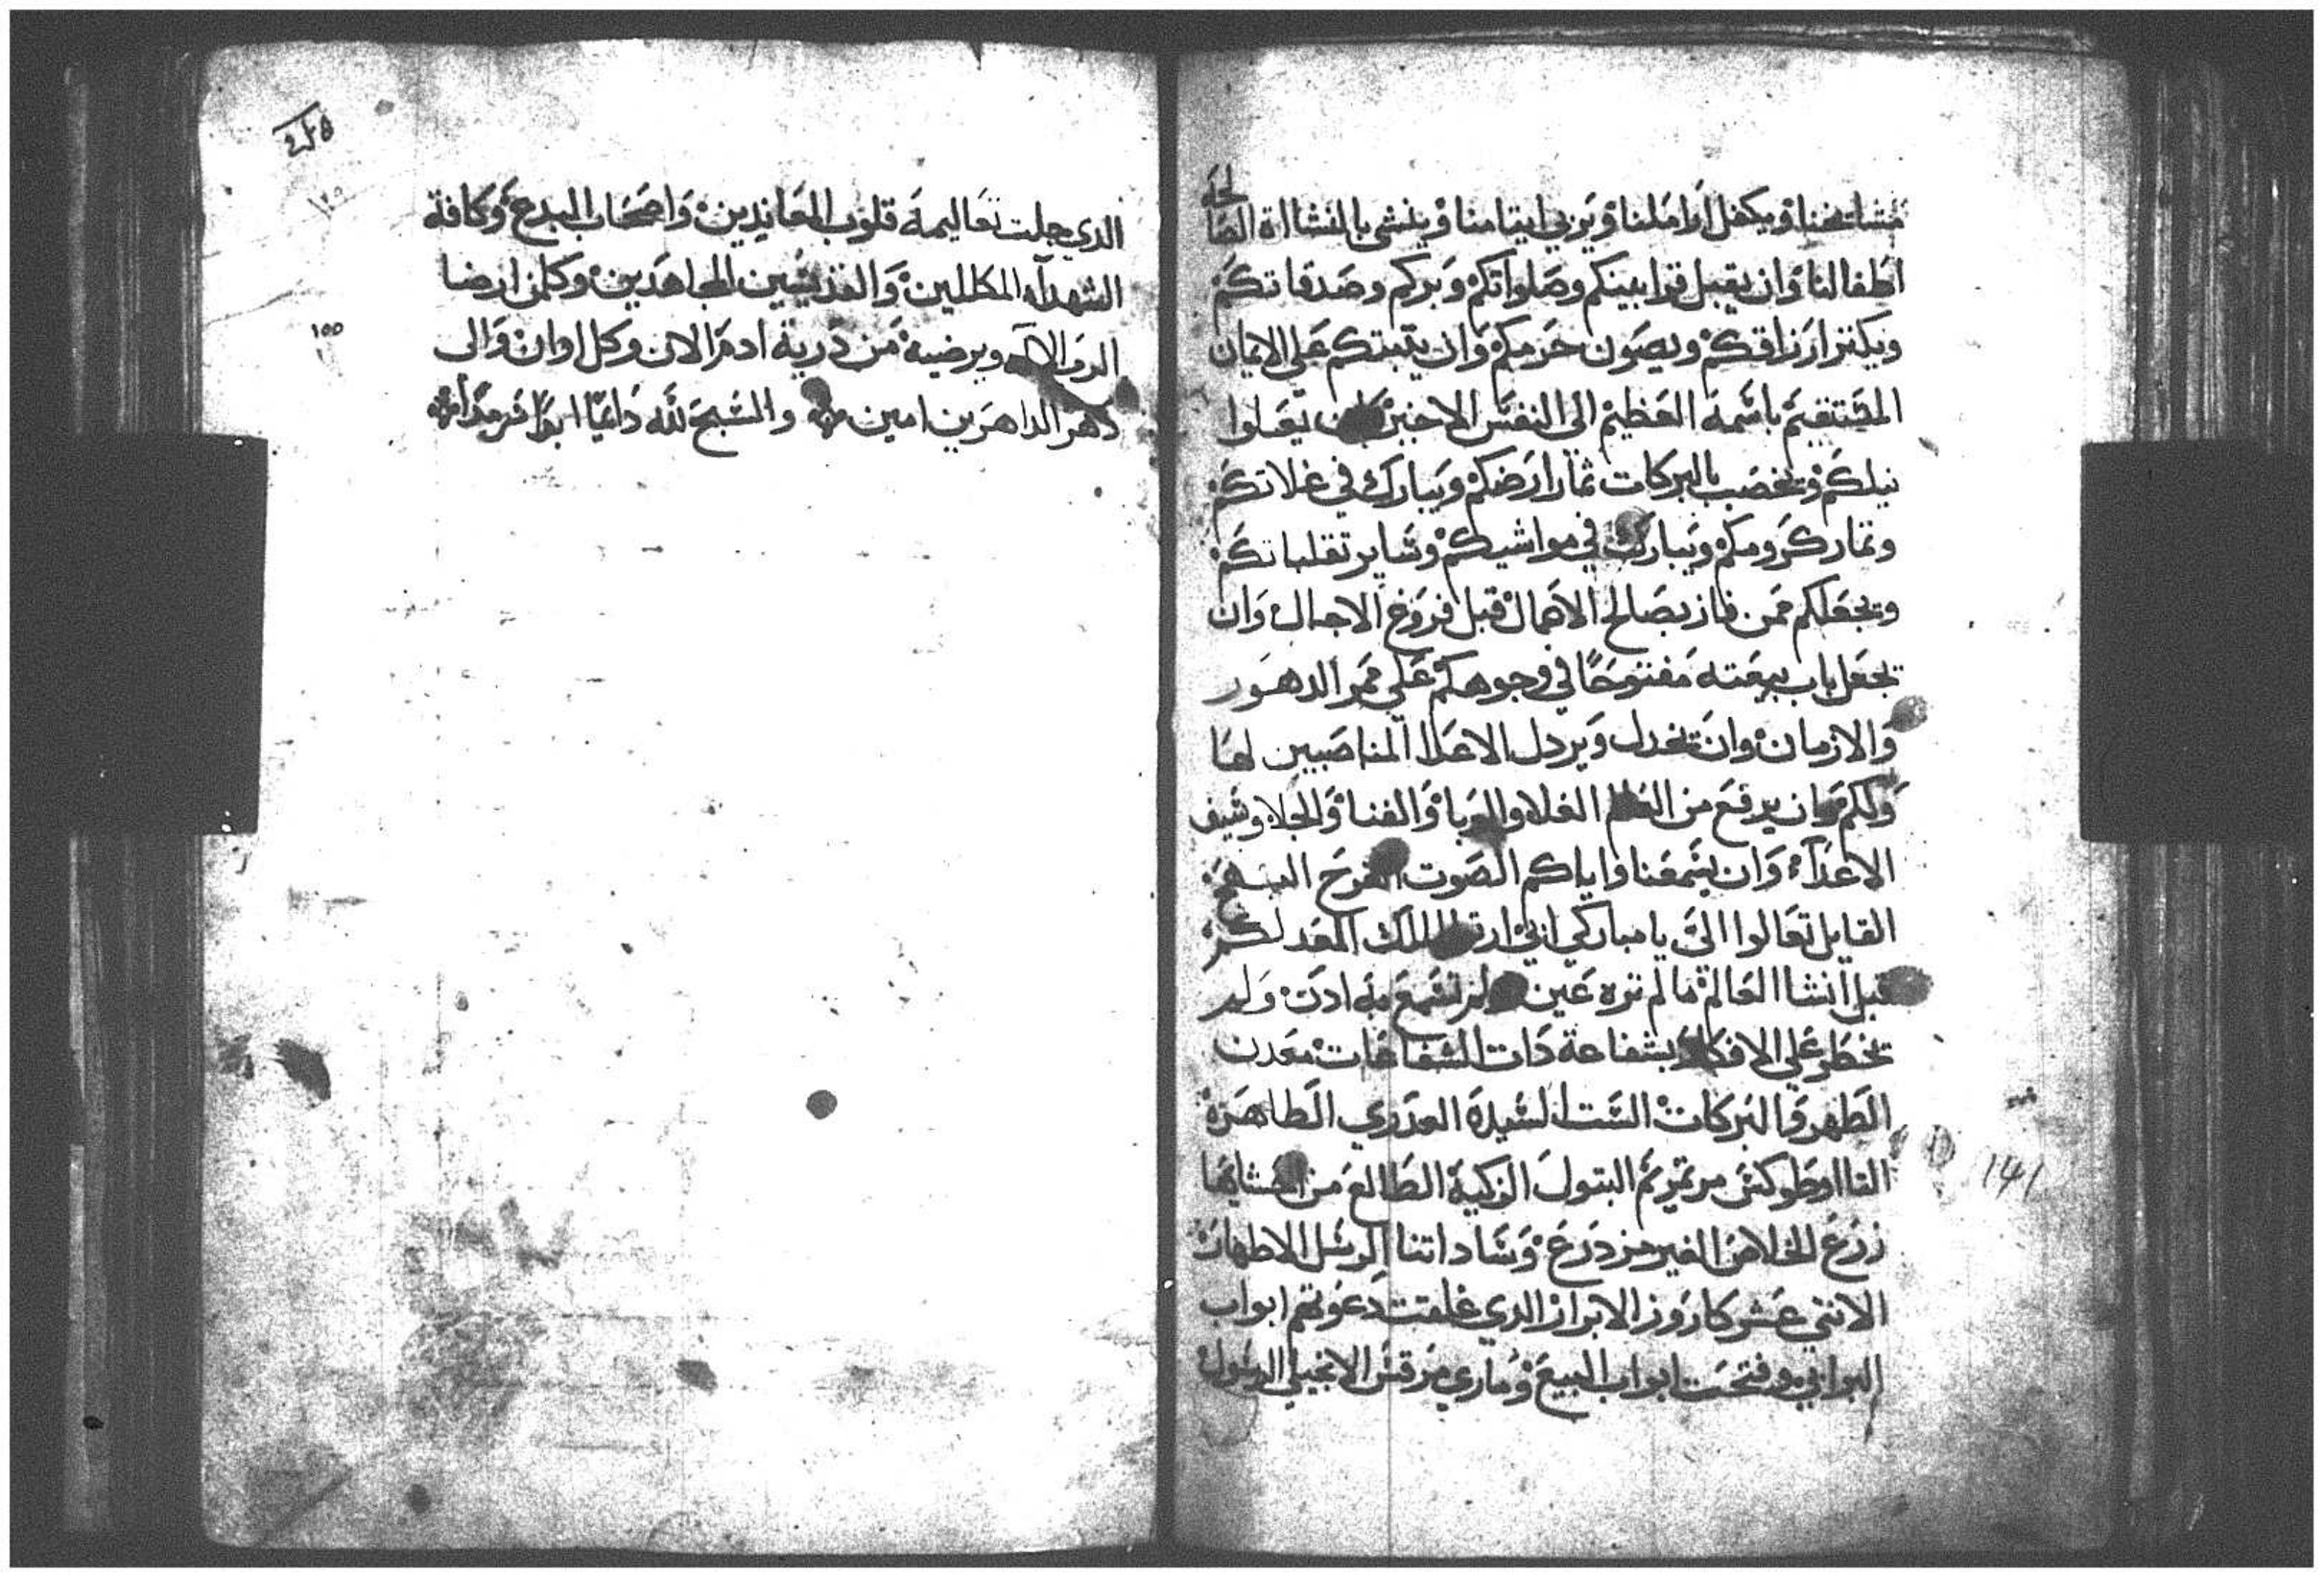 مشايخنا ويكفل اراملنا ويربي ايتامنا وينشي بالنشااة الصالحة
اطفالنا وان يقبل قرابينكم وصلواتكم وبركم وصدقاتكم
ويكتر ارزاقكم ويصون حرمكم وان يتبتكم على الايمان
المستقيم باسمه العظيم الى النفس الاخير يعلوا
نيلكم وتخصب بالبركات تمار ارضكم ويبارك في غلاتكم
وتمار كرومكم ويبارك في مواشيكم وساير تقلباتكم
ويجعلكم ممن فاز بصالح الاعمال قبل فروغ الاجال وان
يجعل باب بيعته مفتوحًا في وجوهكم على ممر الدهور
والازمان وان يخدل ويردل الاعدا المناصبين لها
ولكم وان يرفع من العالم الغلا والوبا والفنا والجلا وسيف
الاعدآء وان يسمعنا واياكم الصوت الفرح
القايل تعالوا الىّ يا مباركي ابي ارتوا الملك المعد لكم
قبل انشا العالم ما لم تره عين ولم تسمع به ادن ولم
يخطر على الافكار بشفاعة دات الشفاعات معدن
الطهر والبركات الست السيدة العدري الطاهرة
التااوطوكس مرتمريم البتول الزكية الطالع من
زرع الخلاص الغير مزدرع وساداتنا الرسل الاطهار
الاتني عشر كاروز الابرار الدي غلقت دعوتهم ابواب
البرابي وفتحت ابواب البيع وماري مرقس الانجيلي الرسول
١٤١
الدي جلت تعاليمه قلوب المعاندين واصحاب البدع وكافة
الشهدآء المكللين والقديسين المجاهدين وكلمن ارضا
الرب الاله ويرضيه من درية ادم الان وكل اوان والى
دهر الداهرين امين والسبح لله دايمًا ابدًا سرمدًا
١٥٥